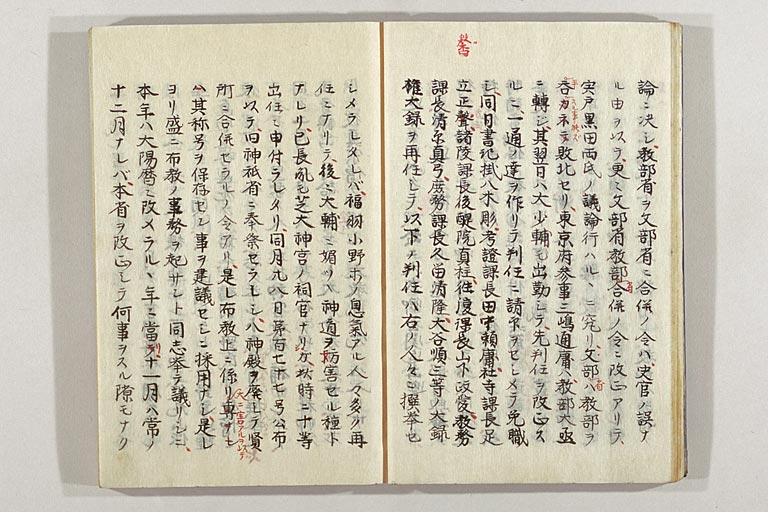 論ニ決シ教部省ヲ文部省ニ合併ノ令ハ史官ノ誤ナ
ル由ヲ以テ更ニ文部省教部省合併ノ令ニ改正アリテ
宍戸黒田両氏ノ議論行ハル、ニ究リ文部省ハ教部ヲ
呑カネテ敗北セリ東京府参事三嶋通庸ハ教部大丞
ニ轉シ其翌日ハ大少輔モ出勤シテ先判任ヲ改正ス
ルニ一通ノ達ヲ作リテ判任ニ請ヲセシメテ免職
シ同日書記掛八木彫考證課長田中頼庸社寺課長足
立正聲諸陵課長後醍院真柱 課長山下政愛教務
課長清原真弓庶務課長久留清隆大谷順三等ノ大録
権大録ヲ再任シテ以下ノ判任ハ右ノ人々ニ撰挙セ
シメラレタレバ福羽小野ホノ息氣アル人々多ク再
任ニナリテ後ニ大輔ニ媚ツヘ神道ヲ妨害セル種ト
ナレリ己長 モ芝大神宮ノ祠官ナリシガ此時ニ十等
出仕ニ申付ラレタリ同月九八日第百七十七号公布
ヲ以テ旧神祇省ニ奉祭セラレシ八神殿ヲ廃シテ賢
所ニ合併セラルノ令アリ是レ布教上ニ係リ専ラモ
大ニ害アルヲ以テ
ハ其称号ヲ保存セン事ヲ建議セシニ採用ナシ是レ
ヨリ盛ニ布教ノ事務ヲ起サント同志挙テ議リシニ
本年ハ大陽暦ニ改メラル、年ニ當リテ十一月ハ常ノ
十二月ナレバ本省ヲ改正シテ何事ヲスル隙モナク